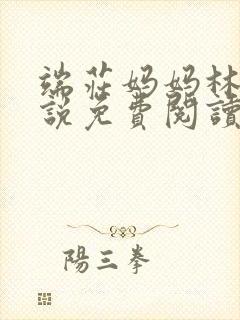 端莊妈妈林
說免費閱讀
陽三拳